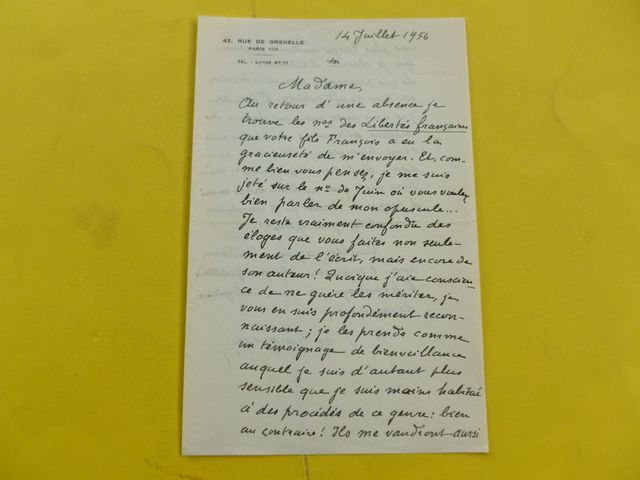 42, RUE DE GRENELLE
PARIS VIIE
TÉL. : LITTRÉ 67-71
14 Juillet 1956
Madame,
Au retour d'une absence je
trouve les nos des Libertés françaises
que votre fils François a eu la
gracieuseté de m'envoyer. Et, com-
me bien vous pensez, je me suis
jeté sur le no de Juin où vous voulez
bien parler de mon opuscule...
Je reste vraiment confondu des
éloges que vous faites non seule-
ment de l'écrit, mais encore de
son auteur! Quoique j'aie conscien-
ce de ne guère les mériter, je
vous en suis profondément recon-
naissant; je les prends comme
un témoignage de bienveillance
auquel je suis d'autant plus
sensible que je suis moins habitué
à des procédés de ce genre: bien
au contraire! Ils me vaudront aussi